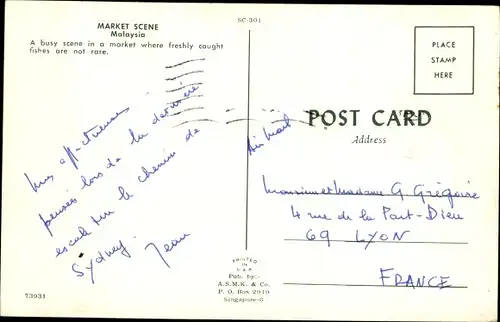 MARKET SCENE
Malaysia
A busy scene in a market where freshly caught
fishes are not rare.
SC-301
PLACE
STAMP
HERE
POST CARD
Address
Air Mail
affectueuses
pensées lors de la dernière
escale sur le chemin de
Sydney.
Jean
Monsieur et Madame G. Grégoire
4 rue de la Part-Dieu
69 LYON
FRANCE
PRINTED
IN
Pub. by:-
A.S.M.K. & Co.
P. O. Box 2919
Singapore-6
73931